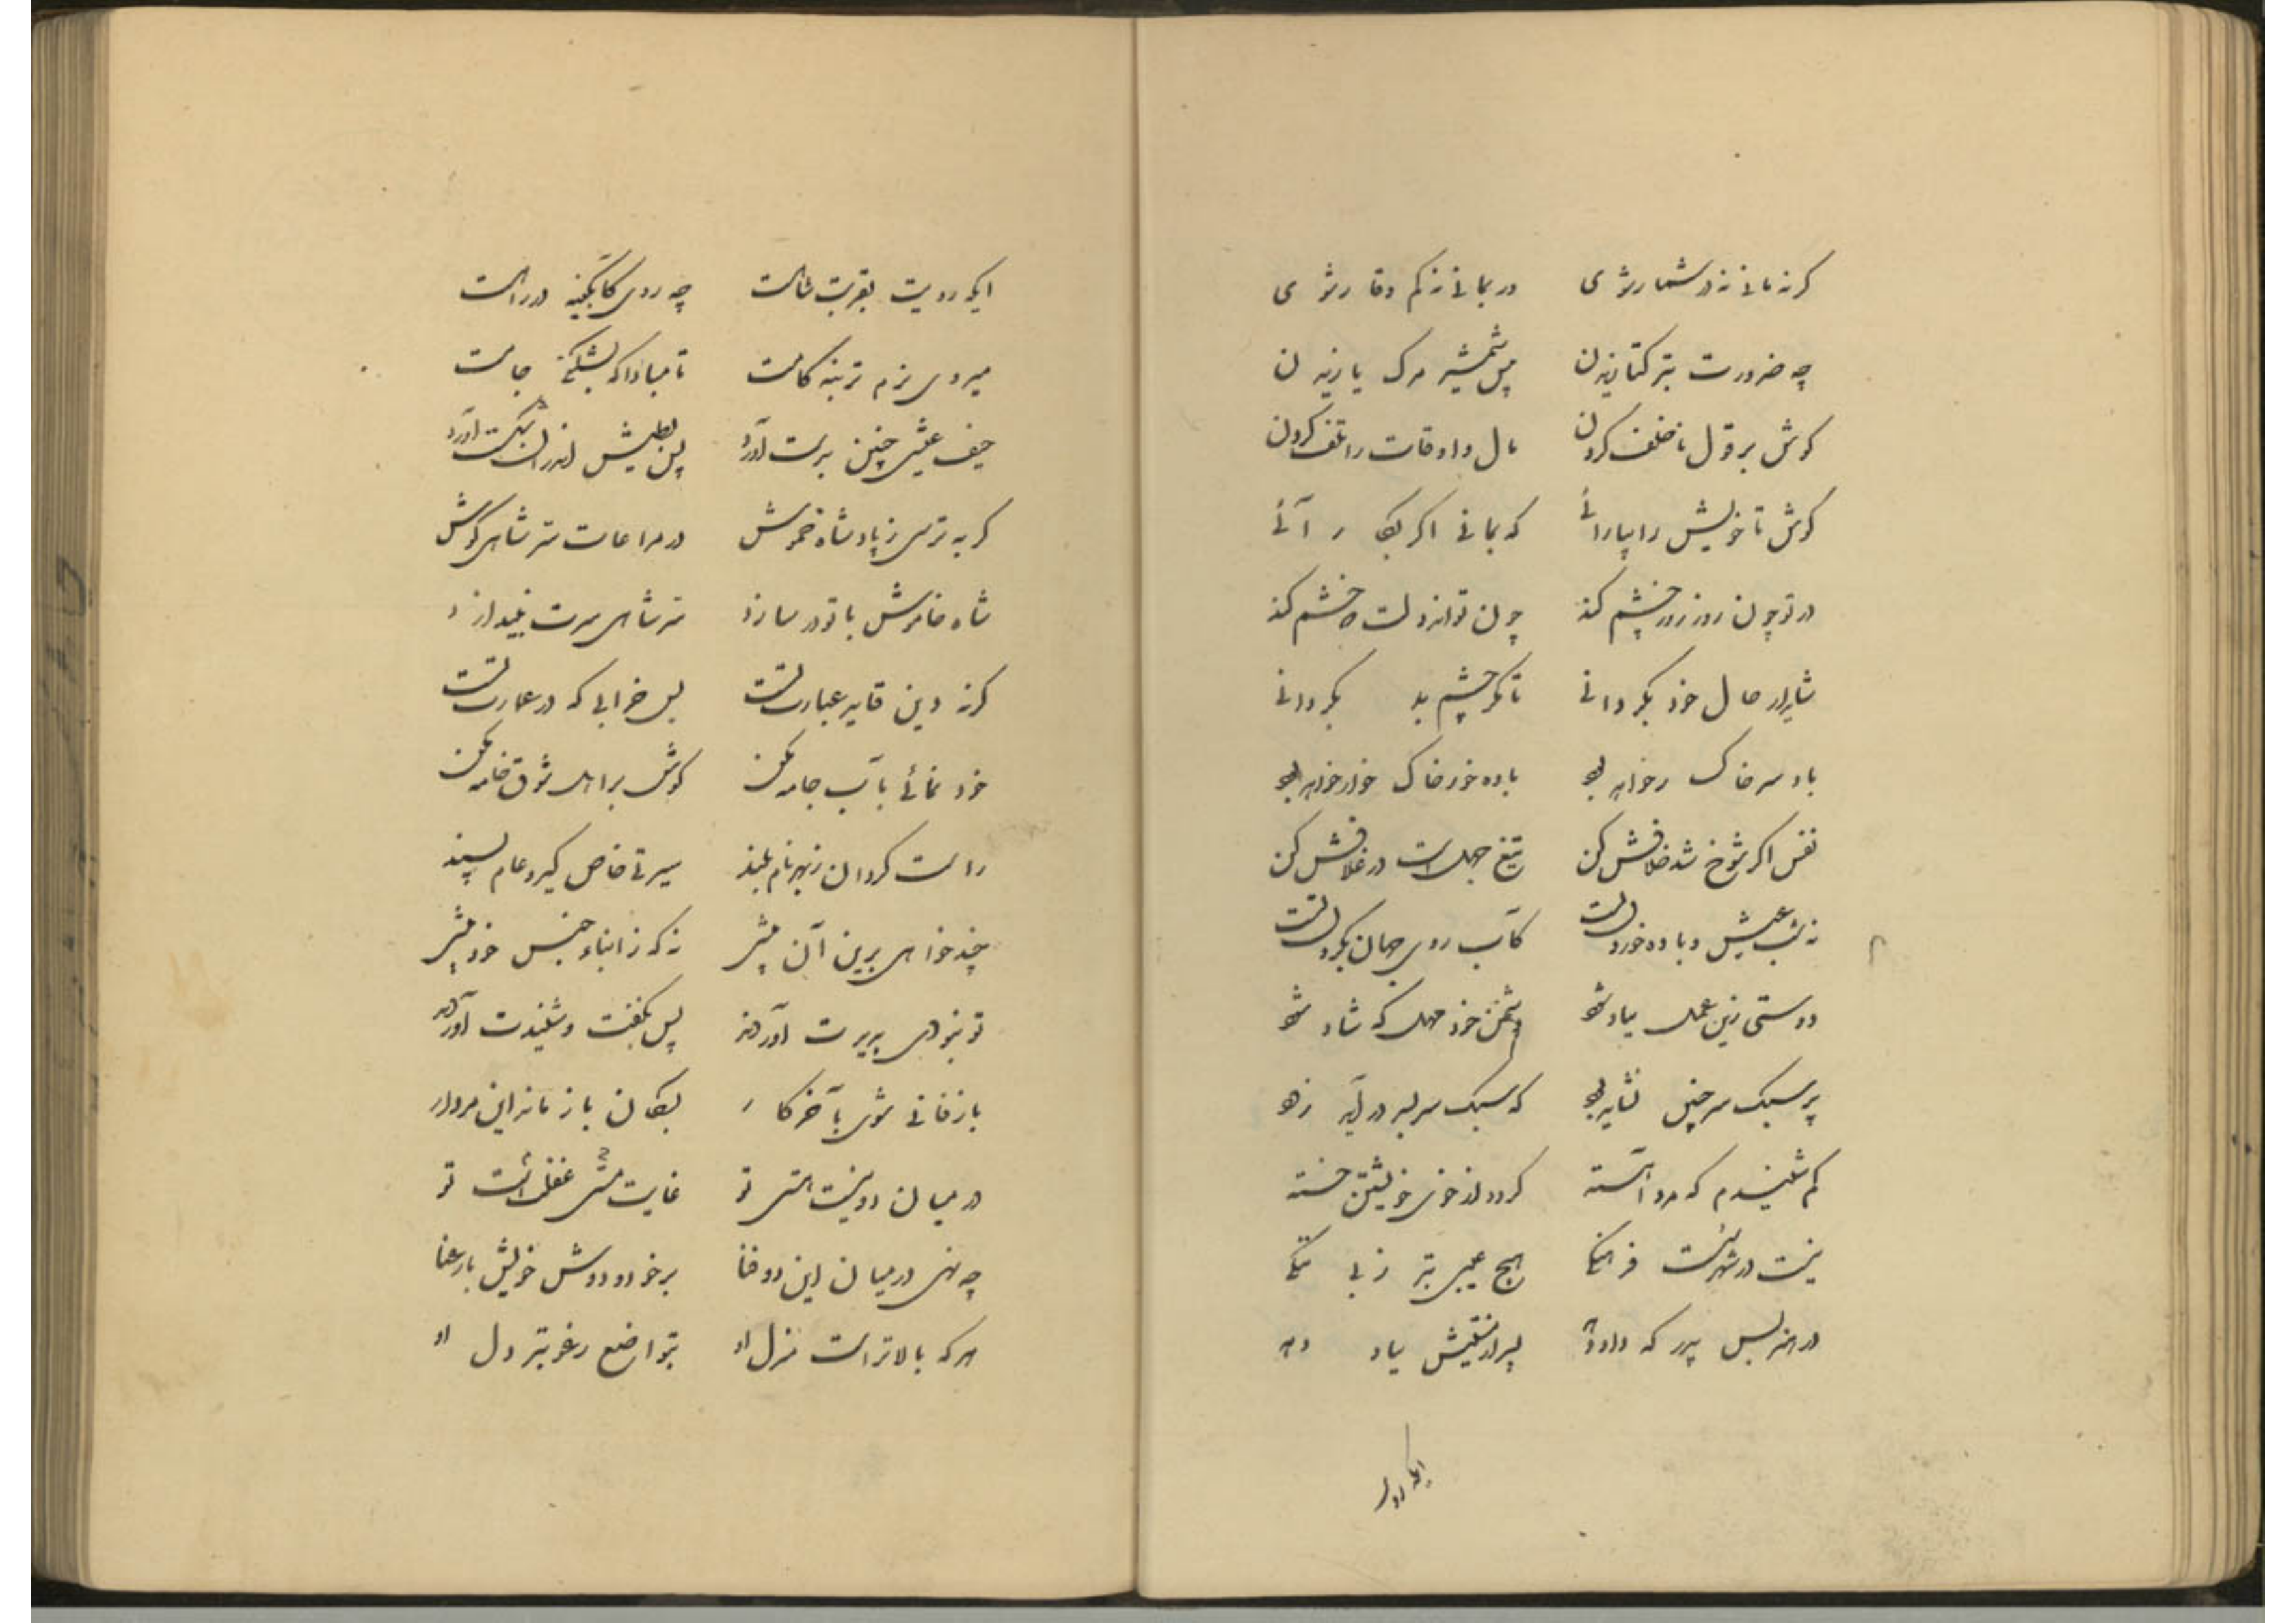 گر نمانی نه در شمار شوی ور بمانی نه کم وقار شوی
چه ضرورت بتر کتازیدن پیش شمشیر مرک یازیدن
کوش بر قول ناخلف کردن مال و اوقات را تلف کردن
کوش تا خویش را بیارائی که بمانی اگر بکار آئی
در تو چون روز زور چشم کند چون تواند دلت که خشم کند
شاید ار حال خود بگردانی تا مگر چشم بد بگردانی
باد سر خاکسار خواهد بود باده خور خاک خوار خواهد بود
نفس اگر شوخ شد خلافش کن تیغ جهلست در غلافش کن
نه شب عیش و باده خوردن تست کآب روی جهان بگردن تست
دوستی زین عمل بباد شود دشمن خود مهل که شاد شود
پر سبک سر چنین نشاید بود که سبک سر بسر در آید زود
کم شنیدم که مرد آهسته گردد از خوی خویشتن خسته
نیست در شهر است فرهنگی هیچ عیبی بتر ز بی تنگی
در هنر بس پدر که داد دهد پسر از نقشیش بباد دهد
ایکه رویت
ایکه رویت بقربت شاهست چه روی کابگینه در راهست
میروی بزم تر بنه کامت تا مبادا که بشکند جامت
حیف عیشی چنین بدست آورد پس بطیش اندران شکست آورد
گر بترسی ز پادشاه خموش در مراعات سر شاهی کوش
شاه خاموش با تو در سازد سر شاهی سرت بیندازد
گرنه دین قاید عبارت تست بس خرابی که در عمارت تست
خود نمائی بآب جامه مکن کوش بر اهل شوق خامه مکن
راست کردان ز بهر نام بلند سیرتی خاص گیر و عام پسند
چند خواهی برین آن بیشی نه که ز ابناء جنس خود بیشی
تو نبودی پدیدت آوردند پس بگفت و شنیدت آوردند
باز فانی شوی بآخر کار بمکان باز مانه این مردار
در میان دو نیست هستی تو غایت مستی غفلتست تو
چه نهی در میان این دو فنا بر خود و دوش خویش بار عنا
هر که بالاتر است منزل او بتواضع رغوبتر دل او